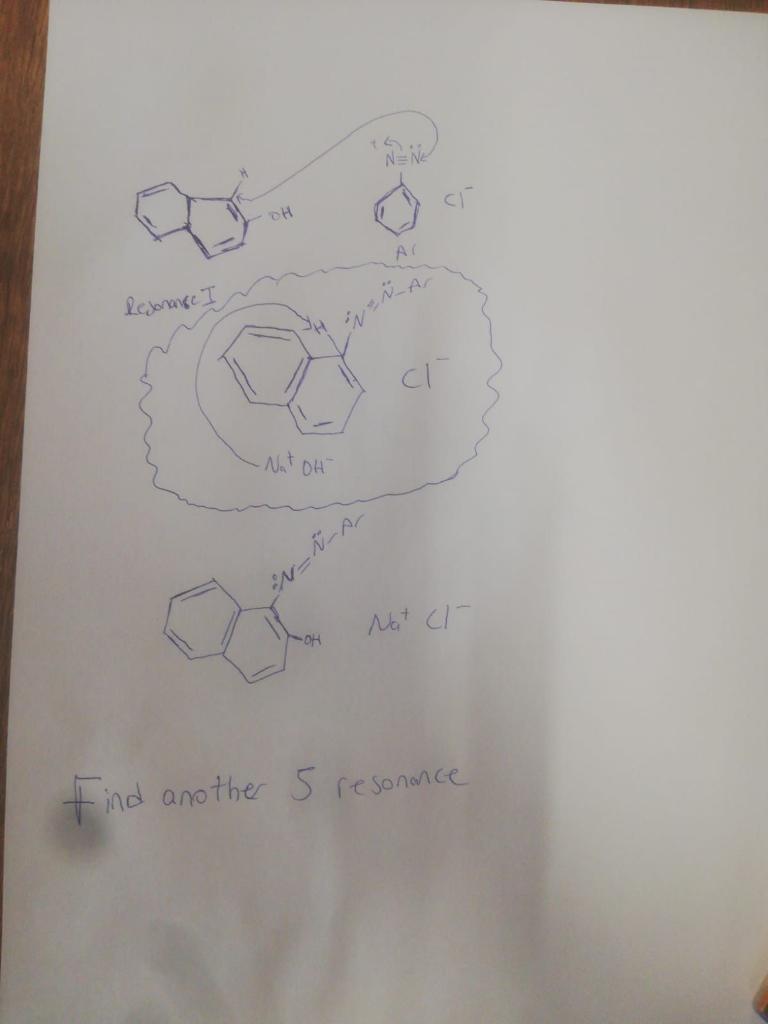 + N≡N̈
H
OH
Cl⁻
Ar
Resonance I
H :N=N̈-Ar
Cl⁻
Na⁺ OH⁻
:N=N̈-Ar
OH
Na⁺ Cl⁻
Find another 5 resonance